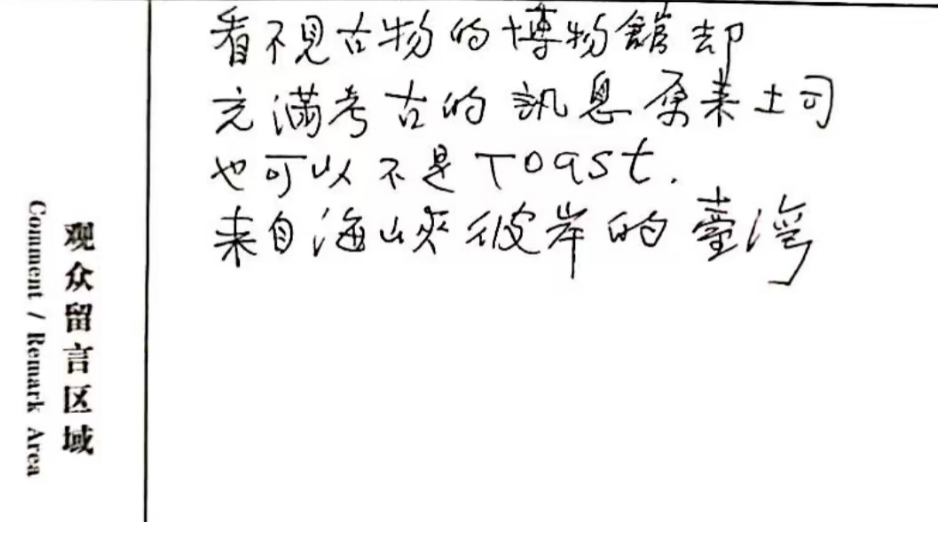 看不見古物的博物館却
充滿考古的訊息原来土司
也可以不是Toast.
来自海峽彼岸的臺灣
观众留言区域
Comment / Remark Area